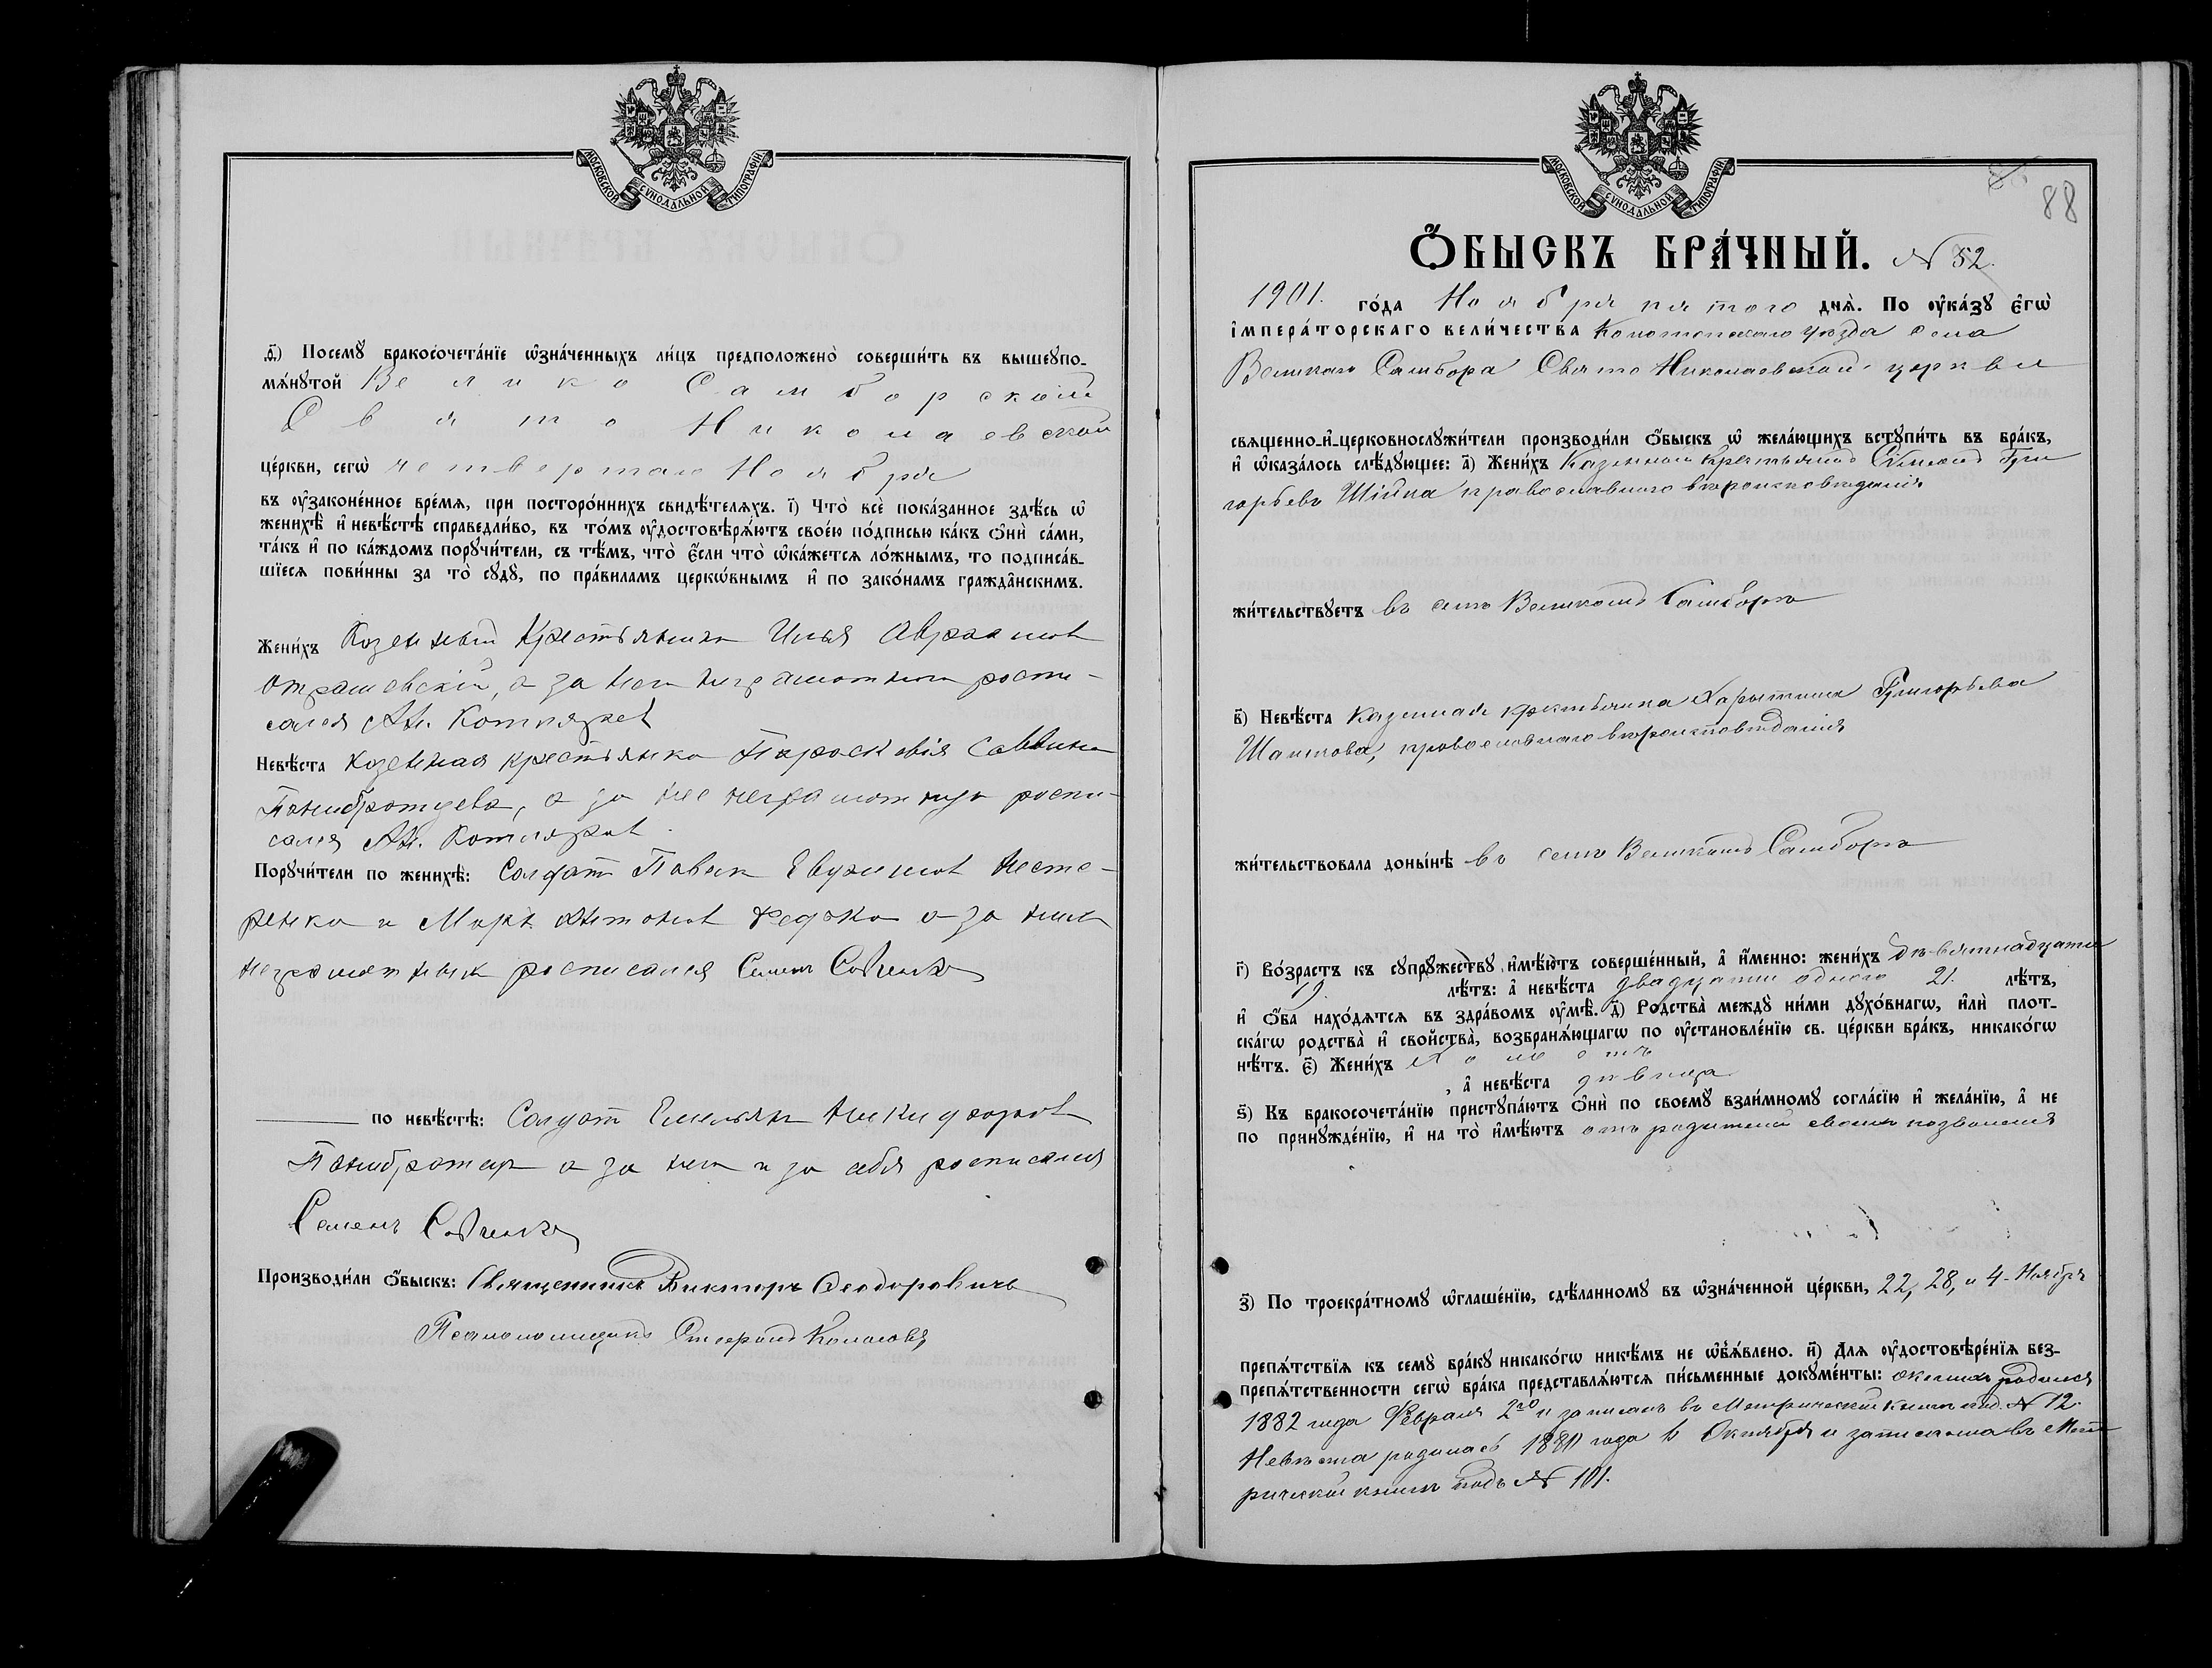 МОСКОВСКОЙ СѴНОДАЛЬНОЙ ТИПОГРАФІИ
ѳ҃) Посемꙋ бракосочета́нїе ѡ҆зна́ченныхъ ли́цъ предположено̀ соверши́ть въ вышеꙋпо-
мѧ́нꙋтой Велико Самборской
Свято Николаевской
це́ркви, сегѡ̀ четвертаго Ноября
въ ᲂу҆законе́нное вре́мѧ, при посторо́ннихъ свидѣ́телѧхъ. і҃) Что̀ всѐ пока́занное здѣ́сь ѡ҆
женихѣ̀ и҆ невѣ́стѣ справедли́во, въ то́мъ ᲂу҆достовѣрѧ́ютъ свое́ю по́дписью ка́къ ѻ҆нѝ са́ми,
та́къ и҆ по ка́ждомъ порꙋчи́тели, съ тѣ́мъ, что̀ є҆́сли что̀ ѡ҆ка́жетсѧ ло́жнымъ, то подписа́в-
шїесѧ пови́нны за то̀ сꙋдꙋ̀, по пра́виламъ церкѡ́внымъ и҆ по зако́намъ гражда̂нскимъ.
Жени́хъ Козенный Крестьянинъ Илья Авраамов
Отрашевскій, а за него неграмотного роспи-
сался Ан. Котляров
Невѣ́ста козенная крестьянка Парасковія Саввина
Панибратцева, а за нее неграмотную роспи-
сался Ан. Котляров.
Порꙋчи́тели по женихѣ̀: Солдат Павел Евфимов Несте-
ренко и Марк Антонов Федко а за них
неграмотных росписался Семенъ Савченко
по невѣ́стѣ: Солдат Емельян Никифоров
Панибратец а за него и за себя росписался
Семенъ Савченко
Производи́ли ѻ҆́быскъ: Священникъ Викторъ Ѳеодоровичъ
Псаломщикъ
МОСКОВСКОЙ СѴНОДАЛЬНОЙ ТИПОГРАФІИ
88
Ѻ҆́БЫСКЪ БРА́ЧНЫЙ. № 52.
1901. го́да Ноября пятого днѧ̀. По ᲂу҆ка́зꙋ є҆гѡ̀
і҆мпера́торскаго вели́чества Конотопскаго уѣзда села
Великаго Самбора Свято Николаевской церкви
свѧщенно-и҆-церковнослꙋжи́тели производи́ли ѻ҆́быскъ ѡ҆ жела́ющихъ встꙋпи́ть въ бра́къ,
и҆ ѡ҆каза́лось слѣ́дꙋющее: а҃) Жени́хъ Казенный крестьянинъ Симеонъ Гри
горьевъ Шійка православнаго вѣроисповѣданія
жи́тельствꙋетъ въ селѣ Великомъ Самборѣ
в҃) Невѣ́ста Казенная крестьянка Харитина Григорьева
православнаго вѣроисповѣданія
жи́тельствовала доны́нѣ въ селѣ Великомъ Самборѣ
г҃) Во́зрастъ къ сꙋпрꙋ́жествꙋ и҆мѣ́ютъ соверше́нный, а҆ и҆́менно: жени́хъ Девятнадцати
19. лѣ́тъ: а҆ невѣ́ста двадцати одного 21. лѣ́тъ,
и҆ ѻ҆́ба нахо́дѧтсѧ въ здра́вомъ ᲂу҆мѣ̀. д҃) Родства̀ междꙋ̀ ни́ми дꙋхо́внагѡ, и҆лѝ плот-
ска́гѡ родства̀ и҆ свойства̀, возбранѧ́ющагѡ по ᲂу҆становле́нїю св. це́ркви бра́къ, никако́гѡ
нѣ́тъ. є҃) Жени́хъ холостъ
, а҆ невѣ́ста дѣвица
ѕ҃) Къ бракосочета́нїю пристꙋпа́ютъ ѻ҆нѝ по своемꙋ̀ взаи́мномꙋ согла́сїю и҆ жела́нїю, а҆ не
по принꙋжде́нїю, и҆ на то̀ и҆мѣ́ютъ отъ родителей своихъ позволеніе
з҃) По троекра́тномꙋ ѡ҆глаше́нїю, сдѣ́ланномꙋ въ ѡ҆зна́ченной це́ркви, 22, 28, и 4- Ноября
препѧ́тствїѧ къ семꙋ̀ бра́кꙋ никако́гѡ никѣ́мъ не ѡ҆б̾ѧ́влено. и҃) Длѧ ᲂу҆достовѣре́нїѧ без-
препѧ́тственности сегѡ̀ бра́ка представлѧ́ютсѧ пи́сьменные докꙋме́нты: женихъ родился
1882 года Февраля 2го и записанъ въ Метрической книгѣ под. № 12.
Невѣста родилась года Октября и записана въ Мет
рической книгѣ подъ № 101.